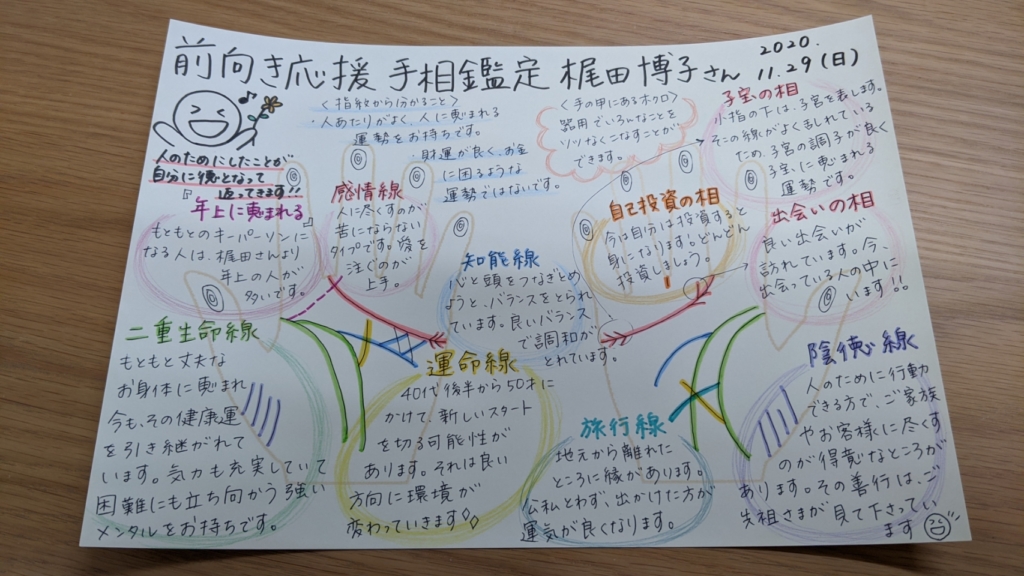 前向き応援 手相鑑定 梶田博子さん
2020.
11.29(日)
<指紋から分かること>
・人あたりがよく、人に恵まれる
運勢をお持ちです。
・財運が良く、お金
に困るような
運勢ではないです。
<手の甲にあるホクロ>
器用でいろんなことを
ソツなくこなすことが
できます。
子宝の相
小指の下は、子宮を表します。
その線がよく乱れている
ため、子宮の調子が良く
子宝に恵まれる
運勢です。
人のためにしたことが
自分に徳となって
返ってきます!!
『年上に恵まれる』
もともとのキーパーソンに
なる人は、梶田さんより
年上の人が
多いです。
感情線
人に尽くすのが
苦にならない
タイプです。愛を
注ぐのが
上手。
知能線
心と頭をつなぎとめ
ようと、バランスをとられ
ています。良いバランス
で調和が
とれています。
自己投資の相
今は自分は投資すると
身になります。どんどん
投資しましょう。
出会いの相
良い出会いが
訪れています。今、
出会っている人の中に
います!!
二重生命線
もともと丈夫な
お身体に恵まれ
今も、その健康運
を引き継がれて
います。気力も充実していて
困難にも立ち向かう強い
メンタルをお持ちです。
運命線
40代後半から50才に
かけて新しいスタート
を切る可能性が
あります。それは良い
方向に環境が
変わっていきます
旅行線
地元から離れた
ところに縁があります。
公私とわず、出かけた方が
運気が良くなります。
陰徳線
人のために行動
できる方で、ご家族
やお客様に尽くす
のが得意なところが
あります。その善行は、ご
先祖さまが見て下さってい
ます